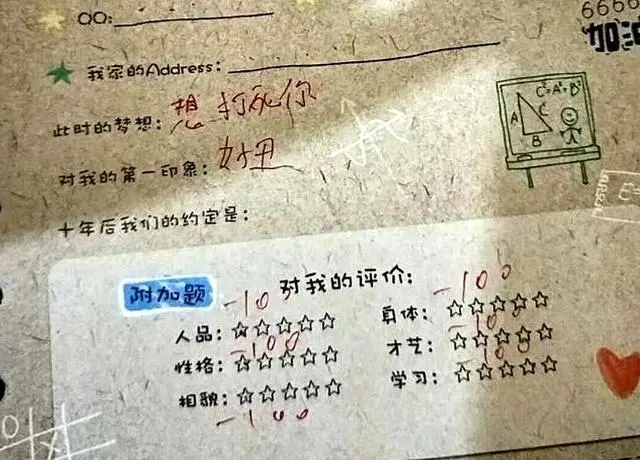 6666
加油
QQ:
我家的Address:
此时的梦想: 想打死你
C²=A²+B²
A
C
B
对我的第一印象: 好丑
十年后我们的约定是:
附加题
对我的评价:
-100
-100
人品: ☆☆☆☆☆
身体: ☆☆☆☆☆
-100
-100
性格: ☆☆☆☆☆
才艺: ☆☆☆☆☆
-100
相貌: ☆☆☆☆☆
学习: ☆☆☆☆☆
-100